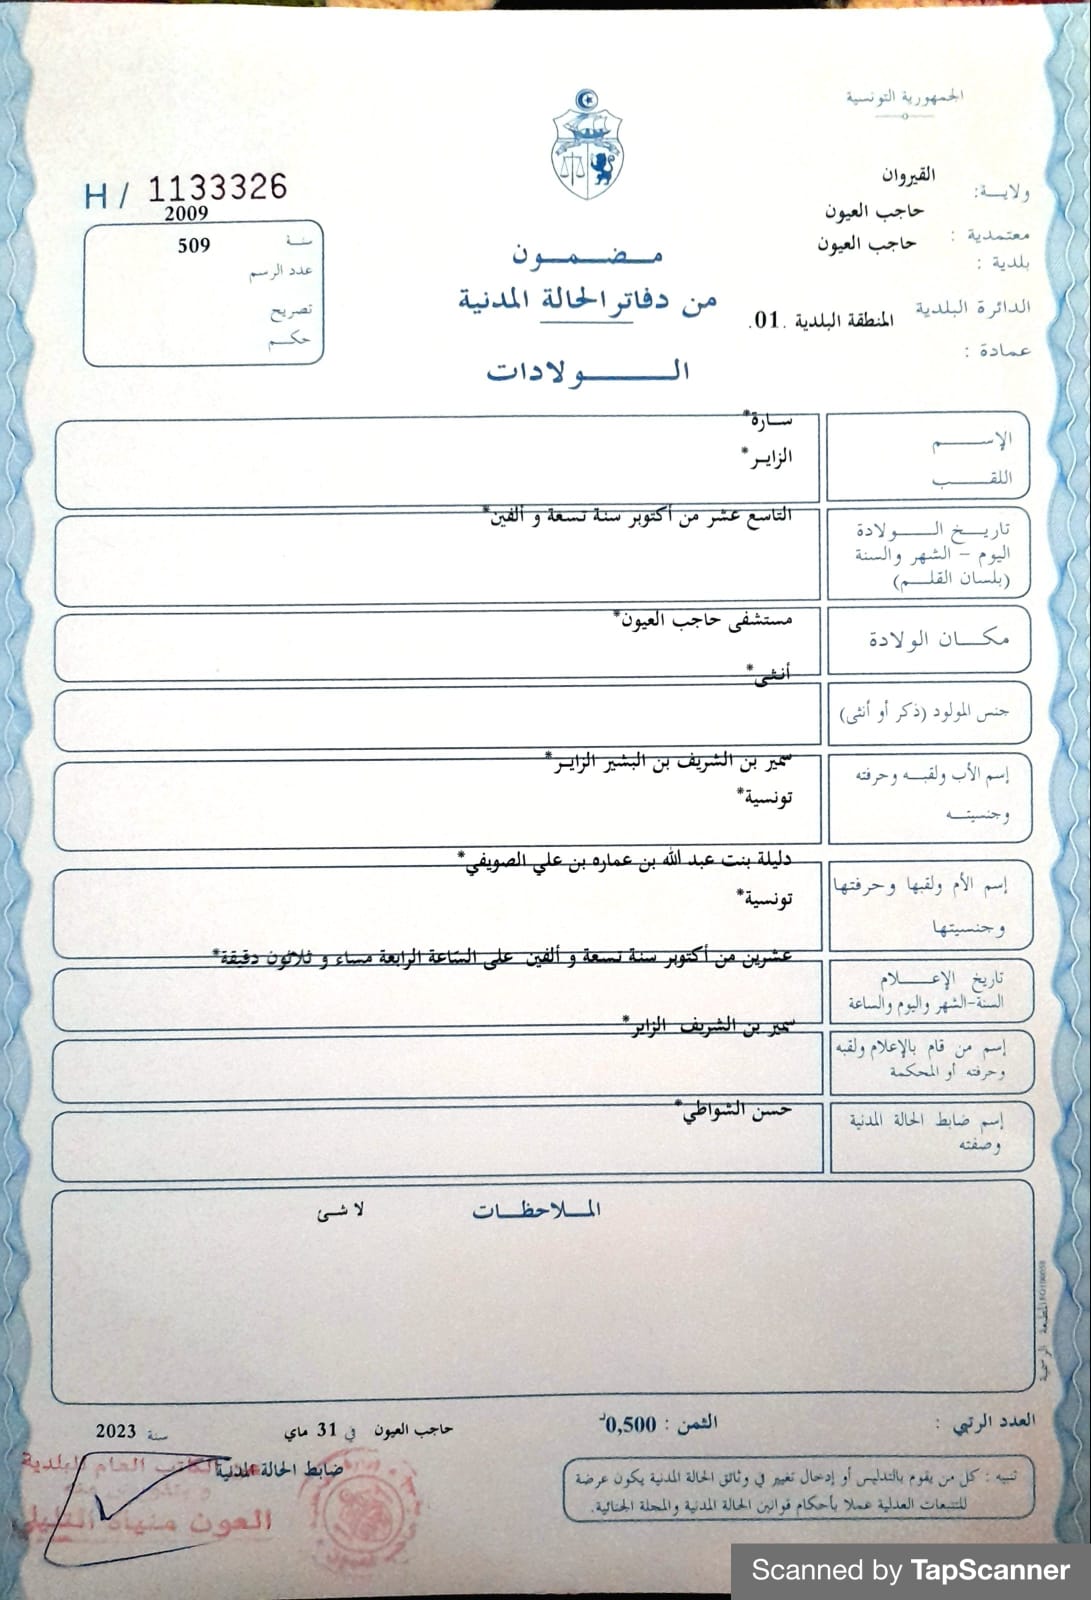 الجمهورية التونسية
ولاية: القيروان
معتمدية : حاجب العيون
بلدية : حاجب العيون
الدائرة البلدية المنطقة البلدية .01.
عمادة :
H / 1133326
2009
سنة
509
عدد الرسم
تصريح
حكم
مضمون
من دفاتر الحالة المدنية
الولادات
الإسم
سارة*
اللقب
الزاير*
تاريخ الولادة
اليوم – الشهر والسنة
(بلسان القلم)
التاسع عشر من أكتوبر سنة تسعة و ألفين*
مكان الولادة
مستشفى حاجب العيون*
جنس المولود (ذكر أو أنثى)
أنثى*
إسم الأب ولقبه وحرفته
وجنسيته
سمير بن الشريف بن البشير الزاير*
تونسية*
إسم الأم ولقبها وحرفتها
وجنسيتها
دليلة بنت عبد الله بن عماره بن علي الصويفي*
تونسية*
تاريخ الإعلام
السنة-الشهر واليوم والساعة
عشرين من أكتوبر سنة تسعة و ألفين على السّاعة الرابعة مساء و ثلاثون دقيقة*
إسم من قام بالإعلام ولقبه
وحرفته أو المحكمة
سمير بن الشريف الزاير*
إسم ضابط الحالة المدنية
وصفته
حسن الشواطي*
الملاحظات
لا شئ
العدد الرتبي :
الثمن : 0,500د
حاجب العيون في 31 ماي سنة 2023
ضابط الحالة المدنية
الكاتب العام للبلدية
العون منياة
تنبيه : كل من يقوم بالتدليس أو إدخال تغيير في وثائق الحالة المدنية يكون عرضة
للتتبعات العدلية عملا بأحكام قوانين الحالة المدنية والمجلة الجنائية.
المطبعة الرسمية
Scanned by TapScanner